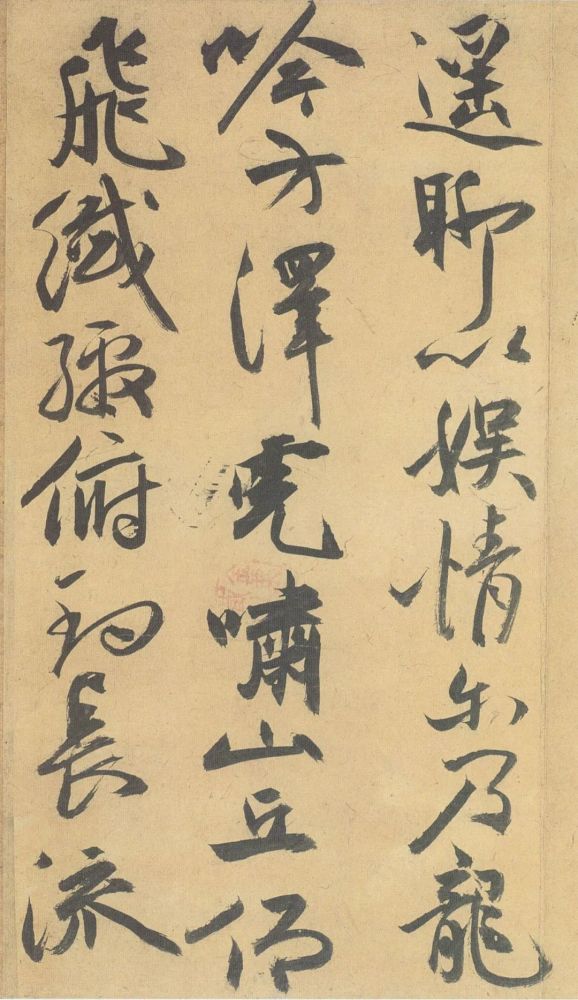 遥聊以娱情尓乃龍
吟方澤虎嘯山丘仰
飛纖繳俯釣長流